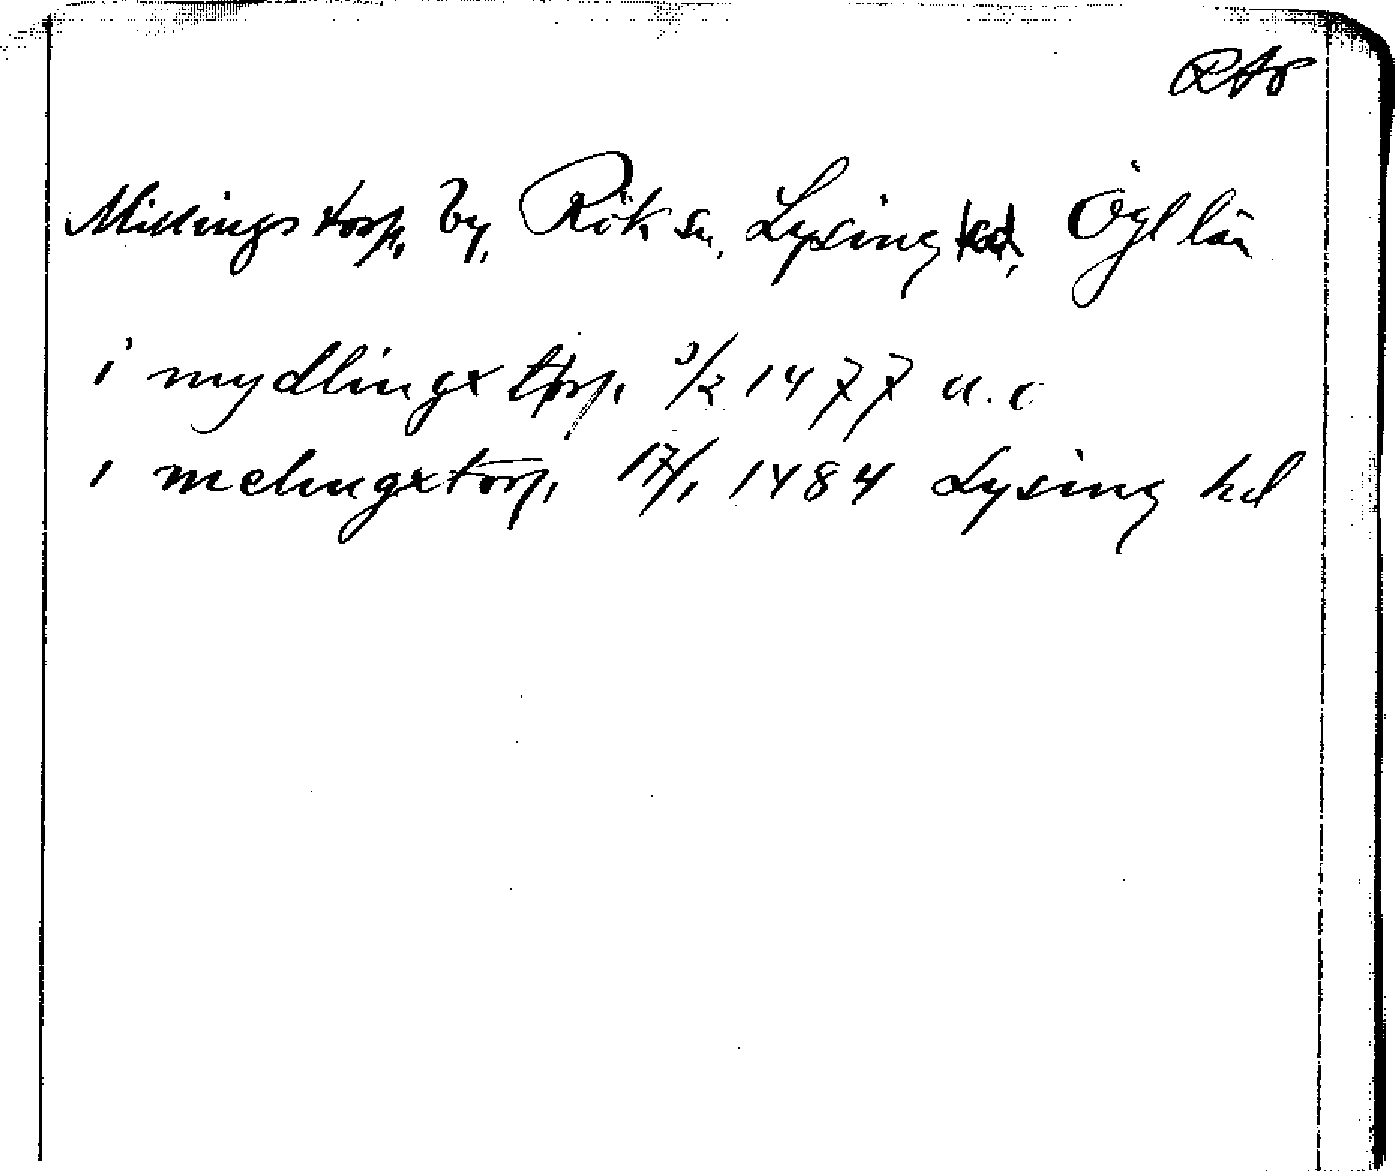 RAP
Millingstorp, by, Rök sn, Lysing hd, Ögl län
i mydlingx thorp 3/2 1477 a.o
i melingxtorp, 17/1 1484 Lysing hd